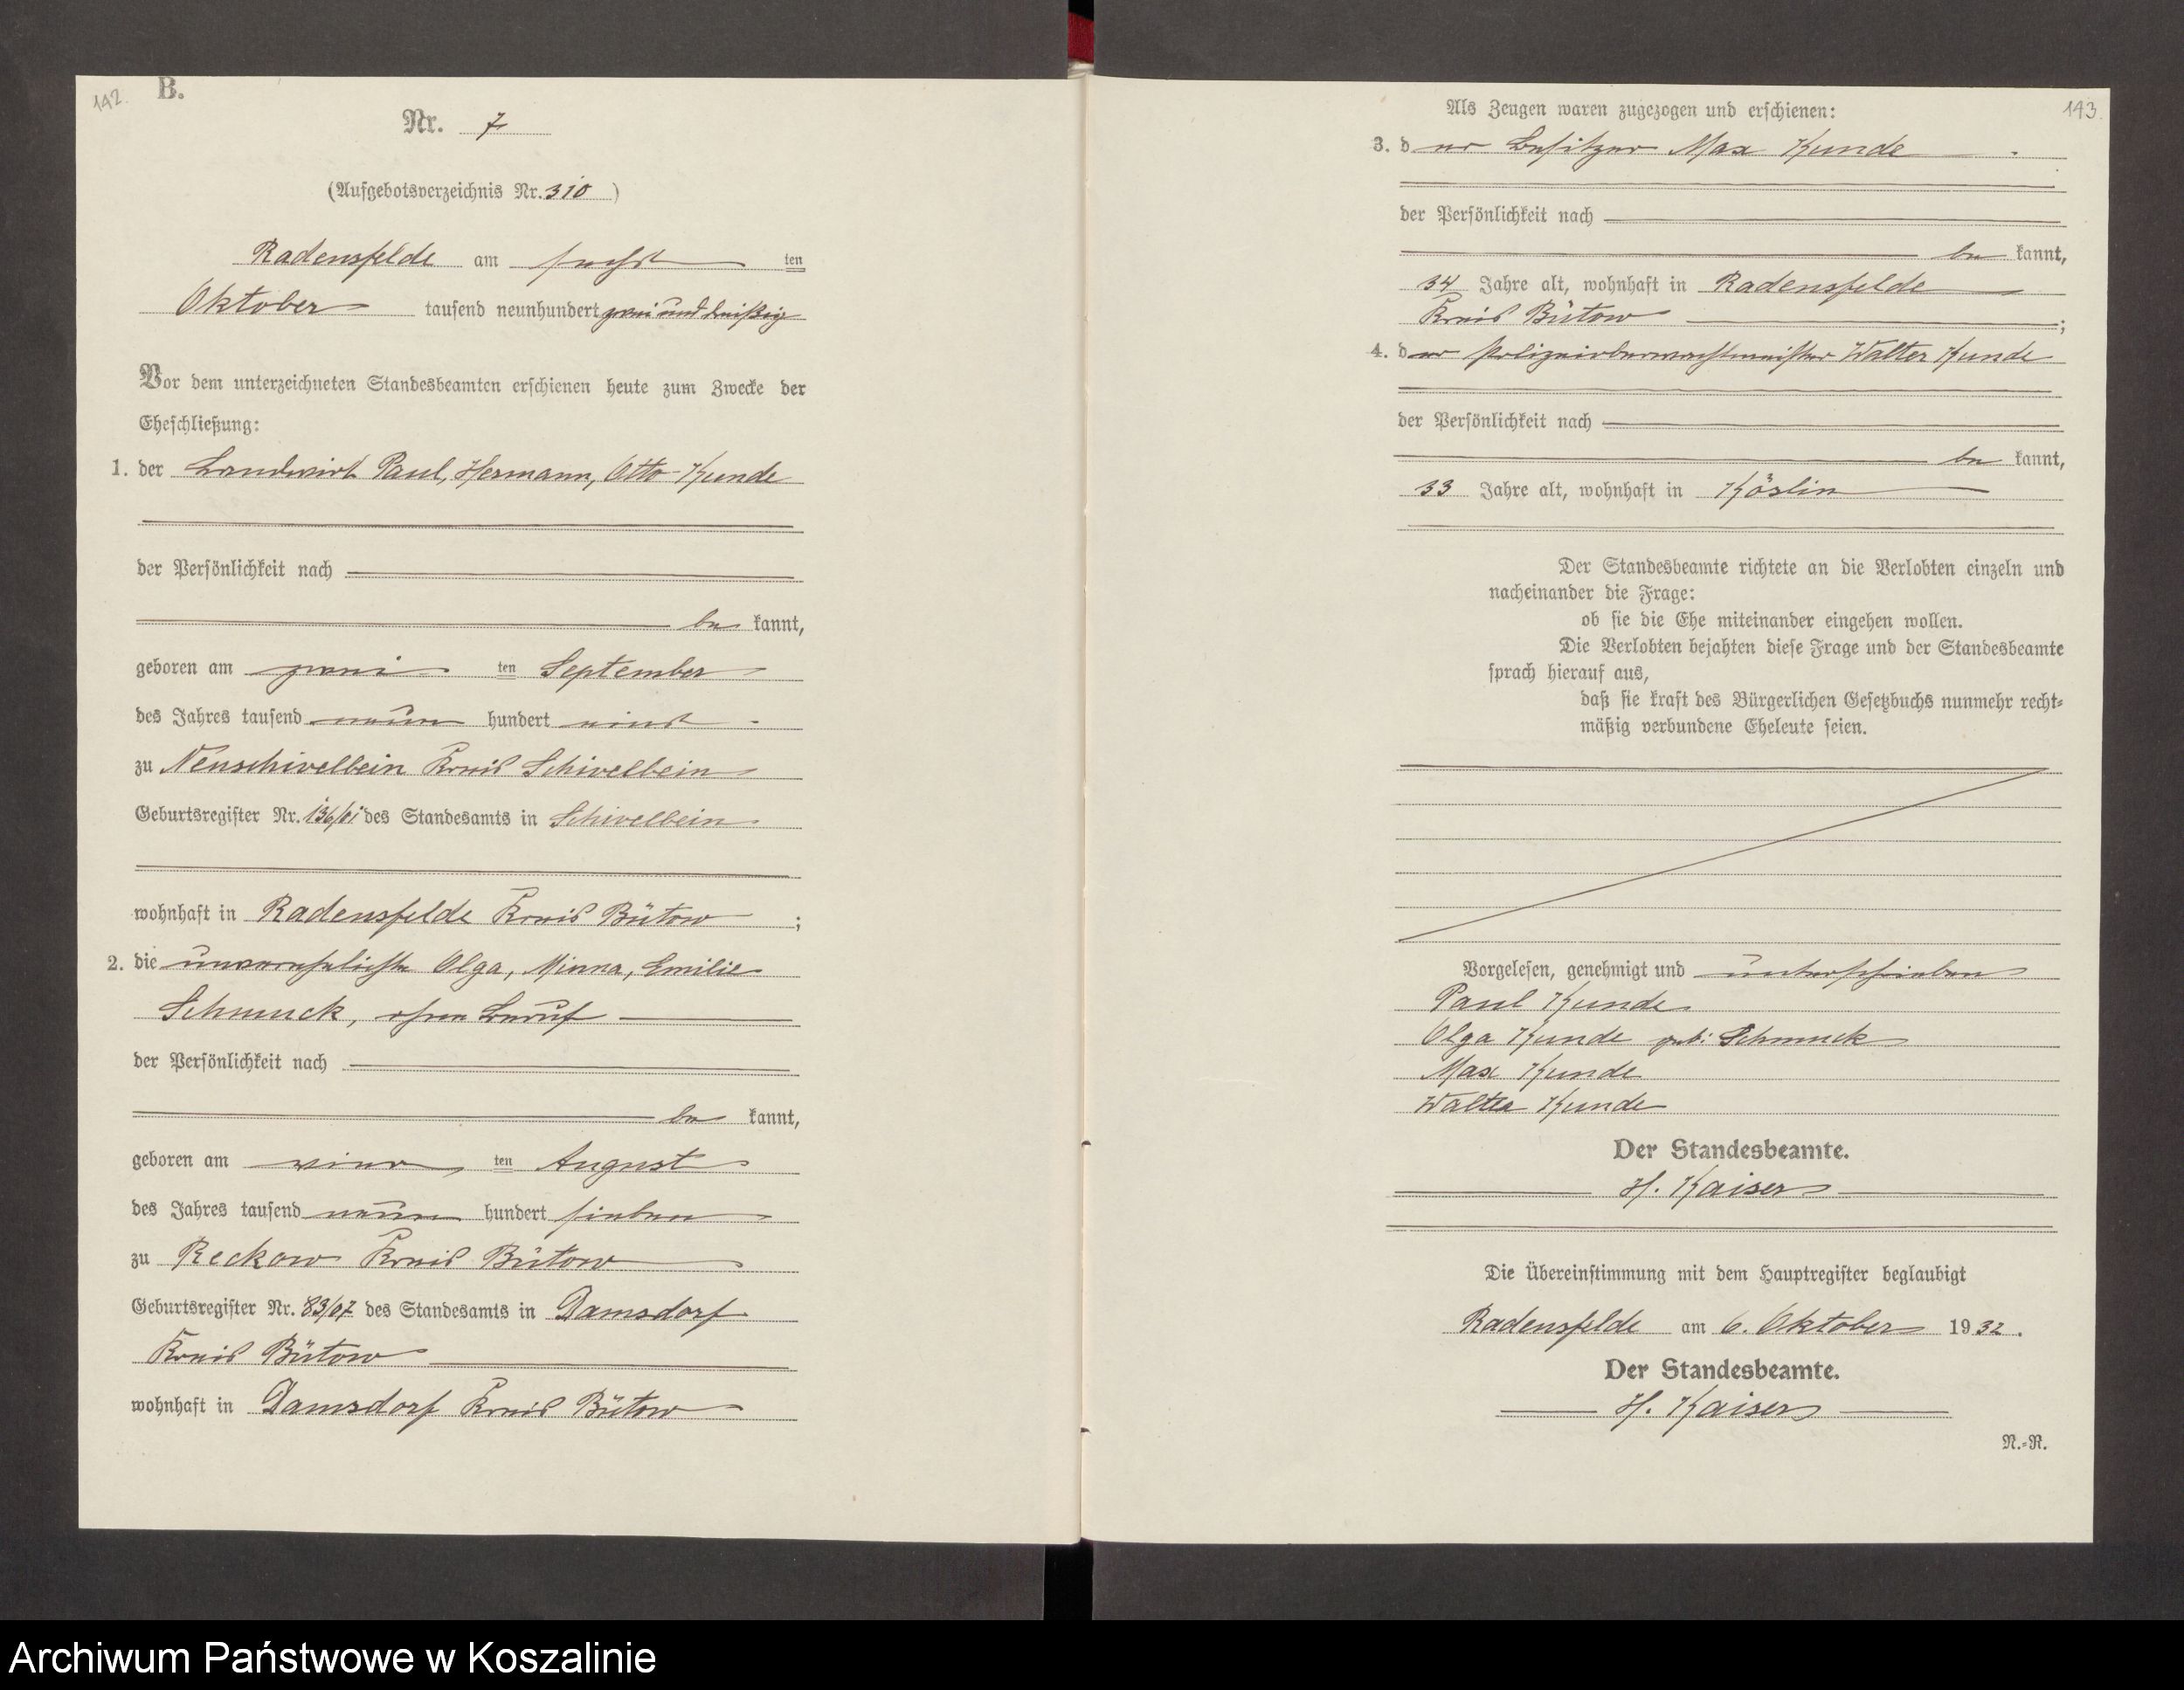 142.
B.
Nr. 7
(Aufgebotsverzeichnis Nr. 310)
Radensfelde am sechsten
Oktober tausend neunhundert zwei und dreißig
Vor dem unterzeichneten Standesbeamten erschienen heute zum Zwecke der
Eheschließung:
1. der Landwirt Paul, Hermann, Otto Kunde
der Persönlichkeit nach
be kannt,
geboren am zwei ten September
des Jahres tausend neun hundert eins
zu Neuschivelbein Kreis Schivelbein
Geburtsregister Nr. 136/01 des Standesamts in Schivelbein
wohnhaft in Radensfelde Kreis Bütow ;
2. die unverehelichte Olga, Minna, Emilie
Schmuck, ohne Beruf
der Persönlichkeit nach
be kannt,
geboren am vier ten August
des Jahres tausend neun hundert sieben
zu Reckow Kreis Bütow
Geburtsregister Nr. 83/07 des Standesamts in Damsdorf
Kreis Bütow
wohnhaft in Damsdorf Kreis Bütow
143.
Als Zeugen waren zugezogen und erschienen:
3. der Besitzer Max Kunde
der Persönlichkeit nach
be kannt,
34 Jahre alt, wohnhaft in Radensfelde
Kreis Bütow ;
4. der Polizeioberwachtmeister Walter Kunde
der Persönlichkeit nach
be kannt,
33 Jahre alt, wohnhaft in Köslin
Der Standesbeamte richtete an die Verlobten einzeln und
nacheinander die Frage:
ob sie die Ehe miteinander eingehen wollen.
Die Verlobten bejahten diese Frage und der Standesbeamte
sprach hierauf aus,
daß sie kraft des Bürgerlichen Gesetzbuchs nunmehr recht-
mäßig verbundene Eheleute seien.
Vorgelesen, genehmigt und unterschrieben
Paul Kunde
Olga Kunde geb: Schmuck
Max Kunde
Walter Kunde
Der Standesbeamte.
H. Kaiser
Die Übereinstimmung mit dem Hauptregister beglaubigt
Radensfelde am 6. Oktober 1932.
Der Standesbeamte.
H. Kaiser
N.-R.
Archiwum Państwowe w Koszalinie